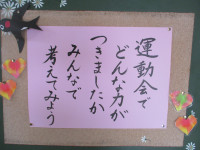 運動会で
どんな力が
つきましたか
みんなで
考えてみよう